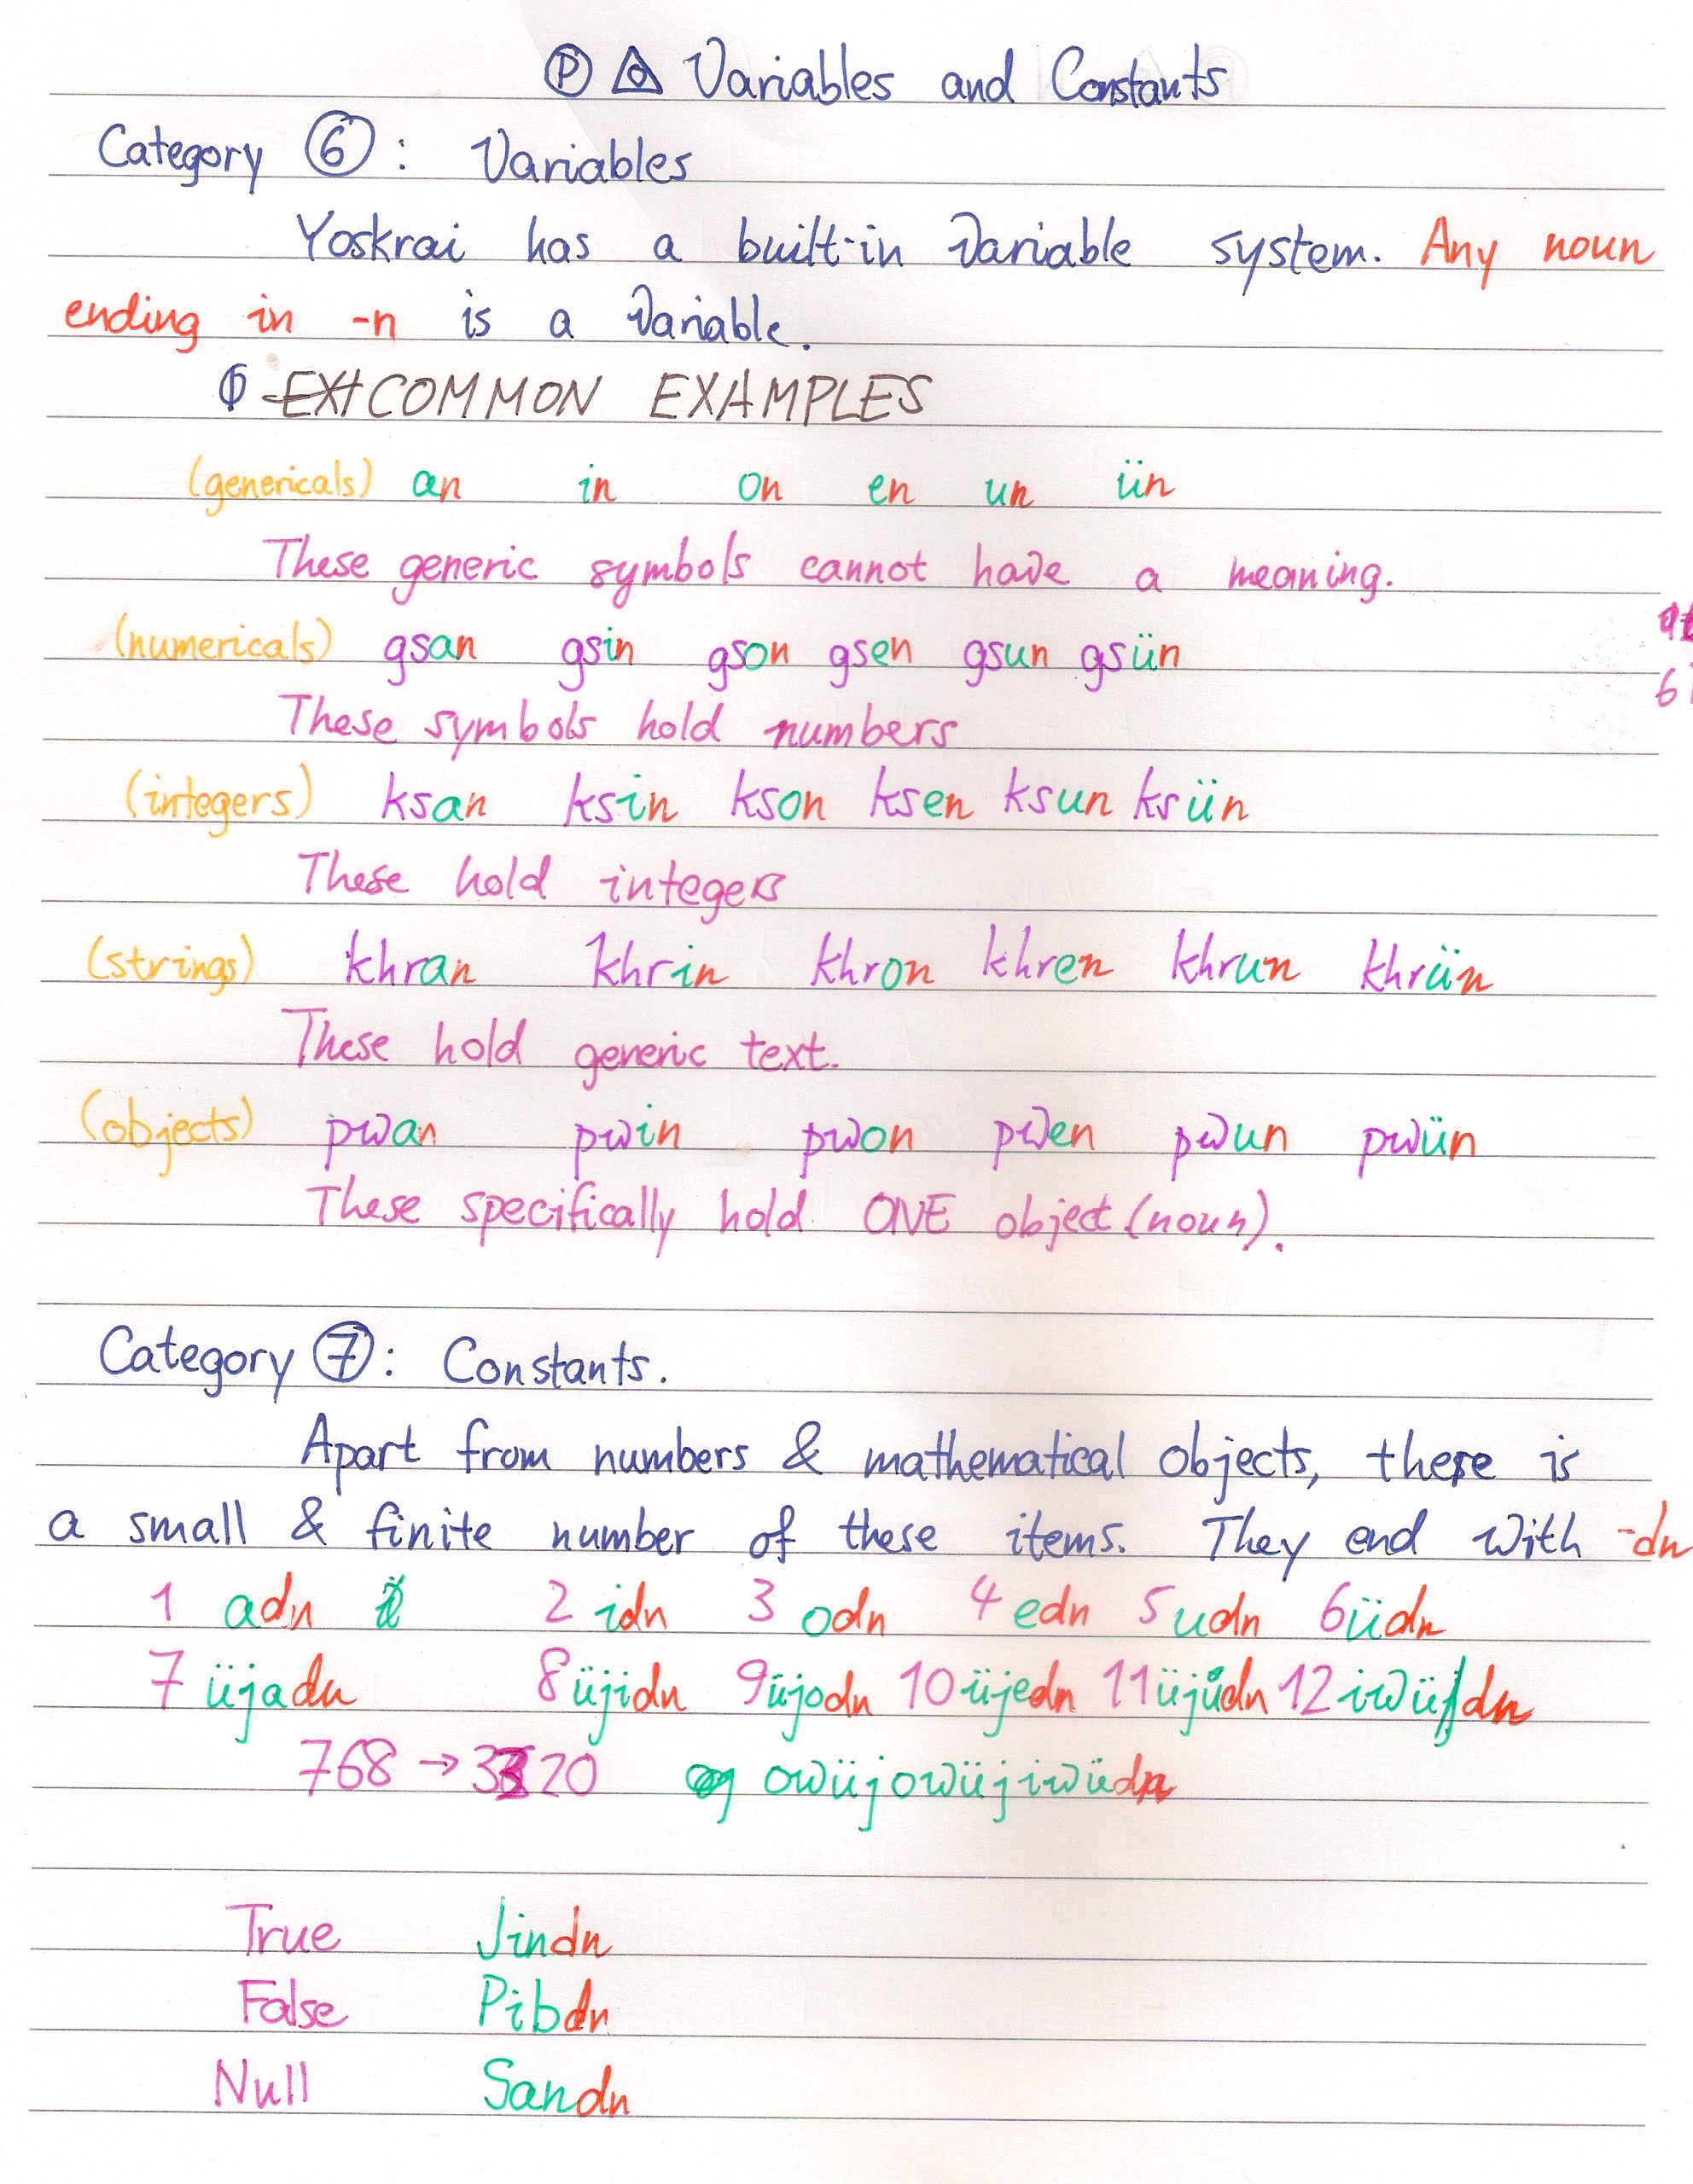 Ⓟ Variables and Constants
Category ⑥: Variables
Yoskrai has a built-in variable system. Any noun
ending in -n is a variable.
COMMON EXAMPLES
(genericals) an in on en un ün
These generic symbols cannot have a meaning.
(numericals) gsan gsin gson gsen gsun gsün
These symbols hold numbers
(integers) ksan ksin kson ksen ksun ksün
These hold integers
(strings) khran khrin khron khren khrun khrün
These hold generic text.
(objects) pwan pwin pwon pwen pwun pwün
These specifically hold ONE object (noun).
Category ⑦: Constants.
Apart from numbers & mathematical objects, there is
a small & finite number of these items. They end with -dn
1 adn 2 idn 3 odn 4 edn 5 udn 6 üdn
7 üjadn 8 üjidn 9 üjodn 10 üjedn 11 üjudn 12 iwüdn
768 → 3320 owüjowüjiwüdn
True Jindn
False Pibdn
Null Sandn